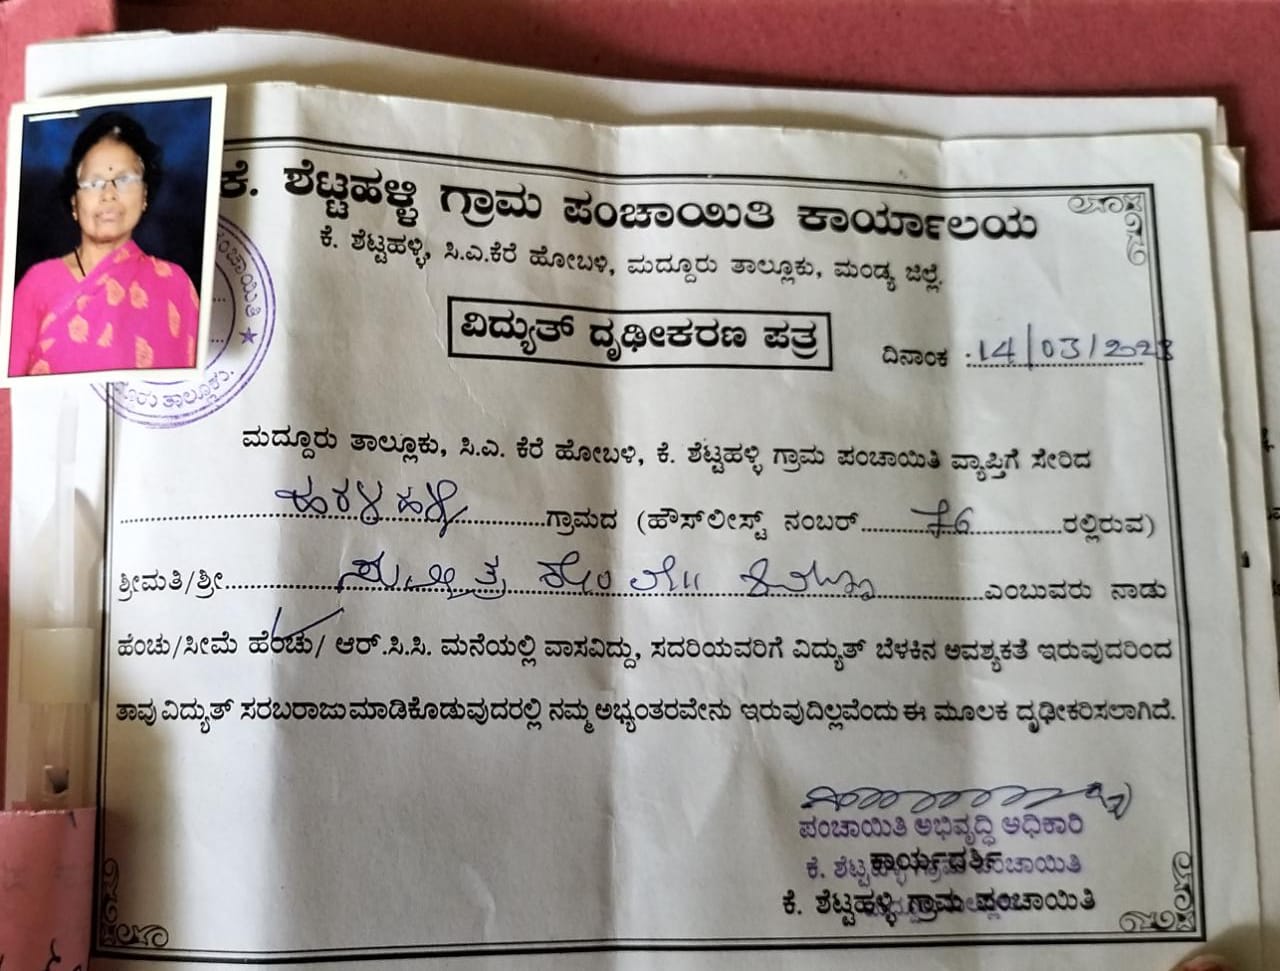 ಕೆ. ಶೆಟ್ಟಹಳ್ಳಿ ಗ್ರಾಮ ಪಂಚಾಯಿತಿ ಕಾರ್ಯಾಲಯ
ಕೆ. ಶೆಟ್ಟಹಳ್ಳಿ, ಸಿ.ಎ.ಕೆರೆ ಹೋಬಳಿ, ಮದ್ದೂರು ತಾಲ್ಲೂಕು, ಮಂಡ್ಯ ಜಿಲ್ಲೆ.
ವಿದ್ಯುತ್ ದೃಢೀಕರಣ ಪತ್ರ
ದಿನಾಂಕ 14/03/2023
ಪಂಚಾಯಿತಿ
ತಾಲ್ಲೂಕು.
ಮದ್ದೂರು ತಾಲ್ಲೂಕು, ಸಿ.ಎ. ಕೆರೆ ಹೋಬಳಿ, ಕೆ. ಶೆಟ್ಟಹಳ್ಳಿ ಗ್ರಾಮ ಪಂಚಾಯಿತಿ ವ್ಯಾಪ್ತಿಗೆ ಸೇರಿದ
ಗ್ರಾಮದ (ಹೌಸ್‌ಲೀಸ್ಟ್ ನಂಬರ್ 76 ರಲ್ಲಿರುವ)
ಶ್ರೀಮತಿ/ಶ್ರೀ ಎಂಬುವರು ನಾಡು
ಹೆಂಚು/ಸೀಮೆ ಹೆಂಚು/ ಆರ್.ಸಿ.ಸಿ. ಮನೆಯಲ್ಲಿ ವಾಸವಿದ್ದು, ಸದರಿಯವರಿಗೆ ವಿದ್ಯುತ್ ಬೆಳಕಿನ ಅವಶ್ಯಕತೆ ಇರುವುದರಿಂದ
ತಾವು ವಿದ್ಯುತ್ ಸರಬರಾಜು ಮಾಡಿಕೊಡುವುದರಲ್ಲಿ ನಮ್ಮ ಅಭ್ಯಂತರವೇನು ಇರುವುದಿಲ್ಲವೆಂದು ಈ ಮೂಲಕ ದೃಢೀಕರಿಸಲಾಗಿದೆ.
ಪಂಚಾಯಿತಿ ಅಭಿವೃದ್ಧಿ ಅಧಿಕಾರಿ
ಕಾರ್ಯದರ್ಶಿ
ಕೆ. ಶೆಟ್ಟಹಳ್ಳಿ ಗ್ರಾಮ ಪಂಚಾಯಿತಿ